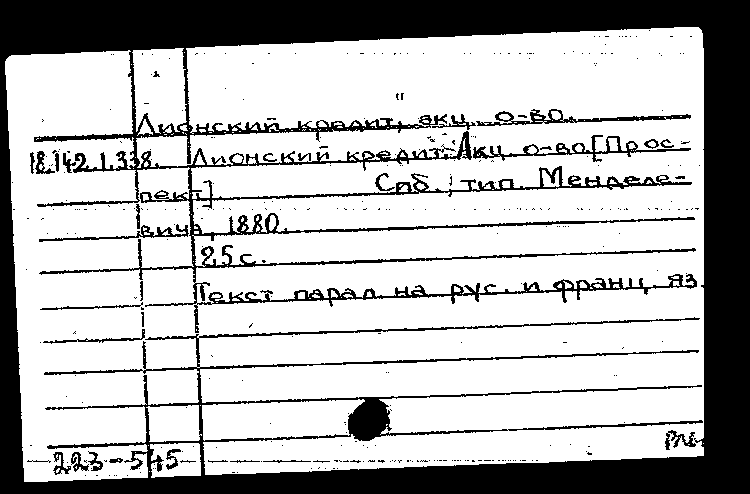 Лионский кредит, акц. о-во.
18.142.1.338. Лионский кредит. Акц. о-во [Прос-
пект] Спб., тип. Менделе-
вича, 1880.
25 с.
Текст парал. на рус. и франц. яз.
223-545